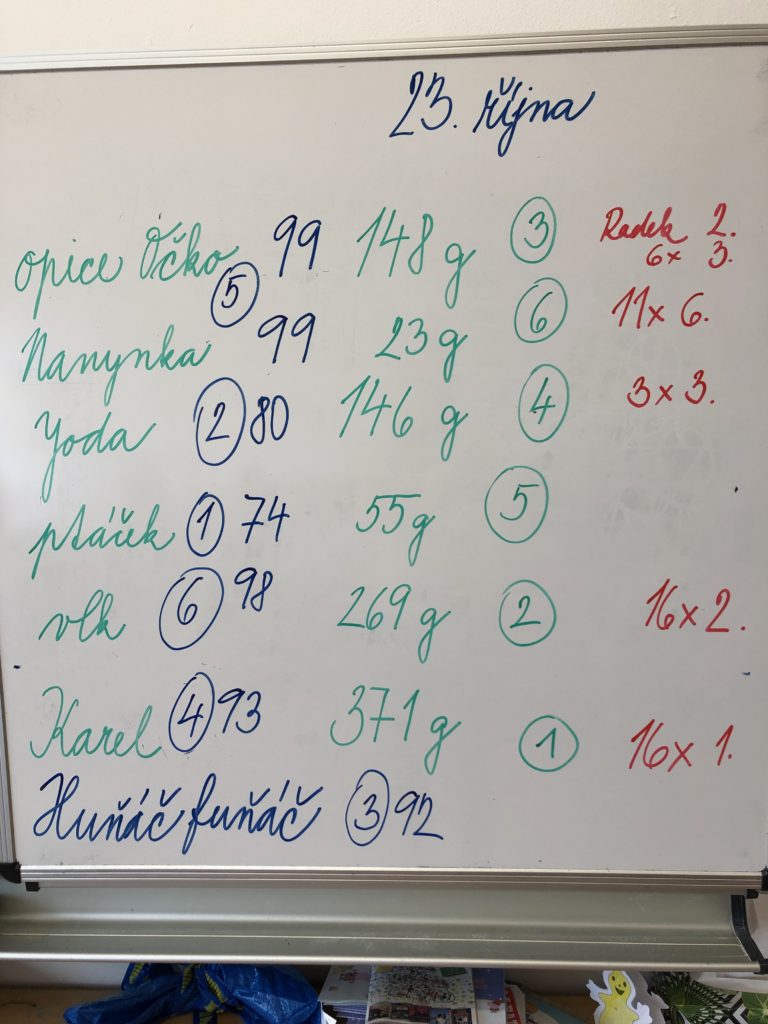 23. října
opice Očko 99 148 g 3 Radek 2.
6x 3.
5
Nanynka 99 23 g 6 11x 6.
Yoda 2 80 146 g 4 3x 3.
ptáček 1 74 55 g 5
vlk 6 98 269 g 2 16x 2.
Karel 4 93 371 g 1 16x 1.
Huňáč fuňáč 3 92